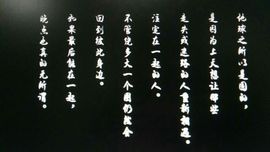 地球之所以是圆的，
是因为上天想让那些
走失或迷路的人重新相遇。
注定在一起的人，
不管绕多大一个圈仍然会
回到彼此身边。
如果最后能在一起，
晚点也真的无所谓。